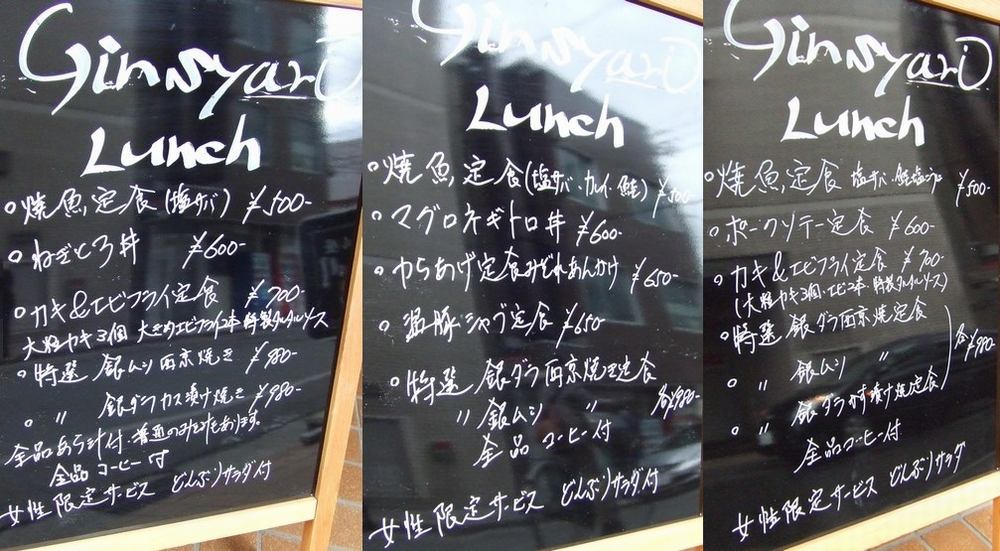 Ginsyari
Lunch
。焼魚定食(塩サバ) ¥500-
。ねぎとろ丼 ¥600-
。カキ&エビフライ定食 ¥700-
大粒カキ3個 大きめエビフライ2本 特製タルタルソース
。特選 銀ムツ西京焼き ¥980-
。〃 銀ダラカス漬け焼き ¥980-
全品あら汁付。普通のみそ汁もあります。
全品コーヒー付
女性限定サービス どんぶりサラダ付
Ginsyari
Lunch
。焼魚定食(塩サバ・カレイ・鮭) ¥500-
。マグロネギトロ丼 ¥600-
。からあげ定食みぞれあんかけ ¥650-
。温豚シャブ定食 ¥650-
。特選 銀ダラ西京焼き定食
〃 銀ムツ 〃 各¥980-
全品コーヒー付
女性限定サービス どんぶりサラダ付
Ginsyari
Lunch
。焼魚定食 塩サバ・鮭 ¥500-
。ポークソテー定食 ¥600-
。カキ&エビフライ定食 ¥700-
(大粒カキ3個・エビ2本 特製タルタルソース)
。特選 銀ダラ西京焼定食
。〃 銀ムツ 〃 各¥980-
。〃 銀ダラかす漬け焼定食
全品コーヒー付
女性限定サービス どんぶりサラダ